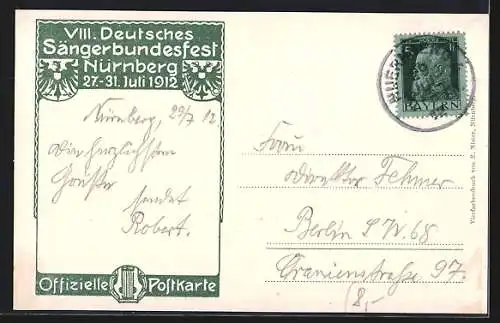 VIII. Deutsches
Sängerbundesfest
Nürnberg
27-31. Juli 1912
Nürnberg, 29/7 12
Die herzlichsten
Grüße
sendet
Robert.
Offizielle Postkarte
5
BAYERN
Frau
Direktor Fehmer
Berlin S.W. 68
Oranienstraße 97.
8,-
Nürnberg